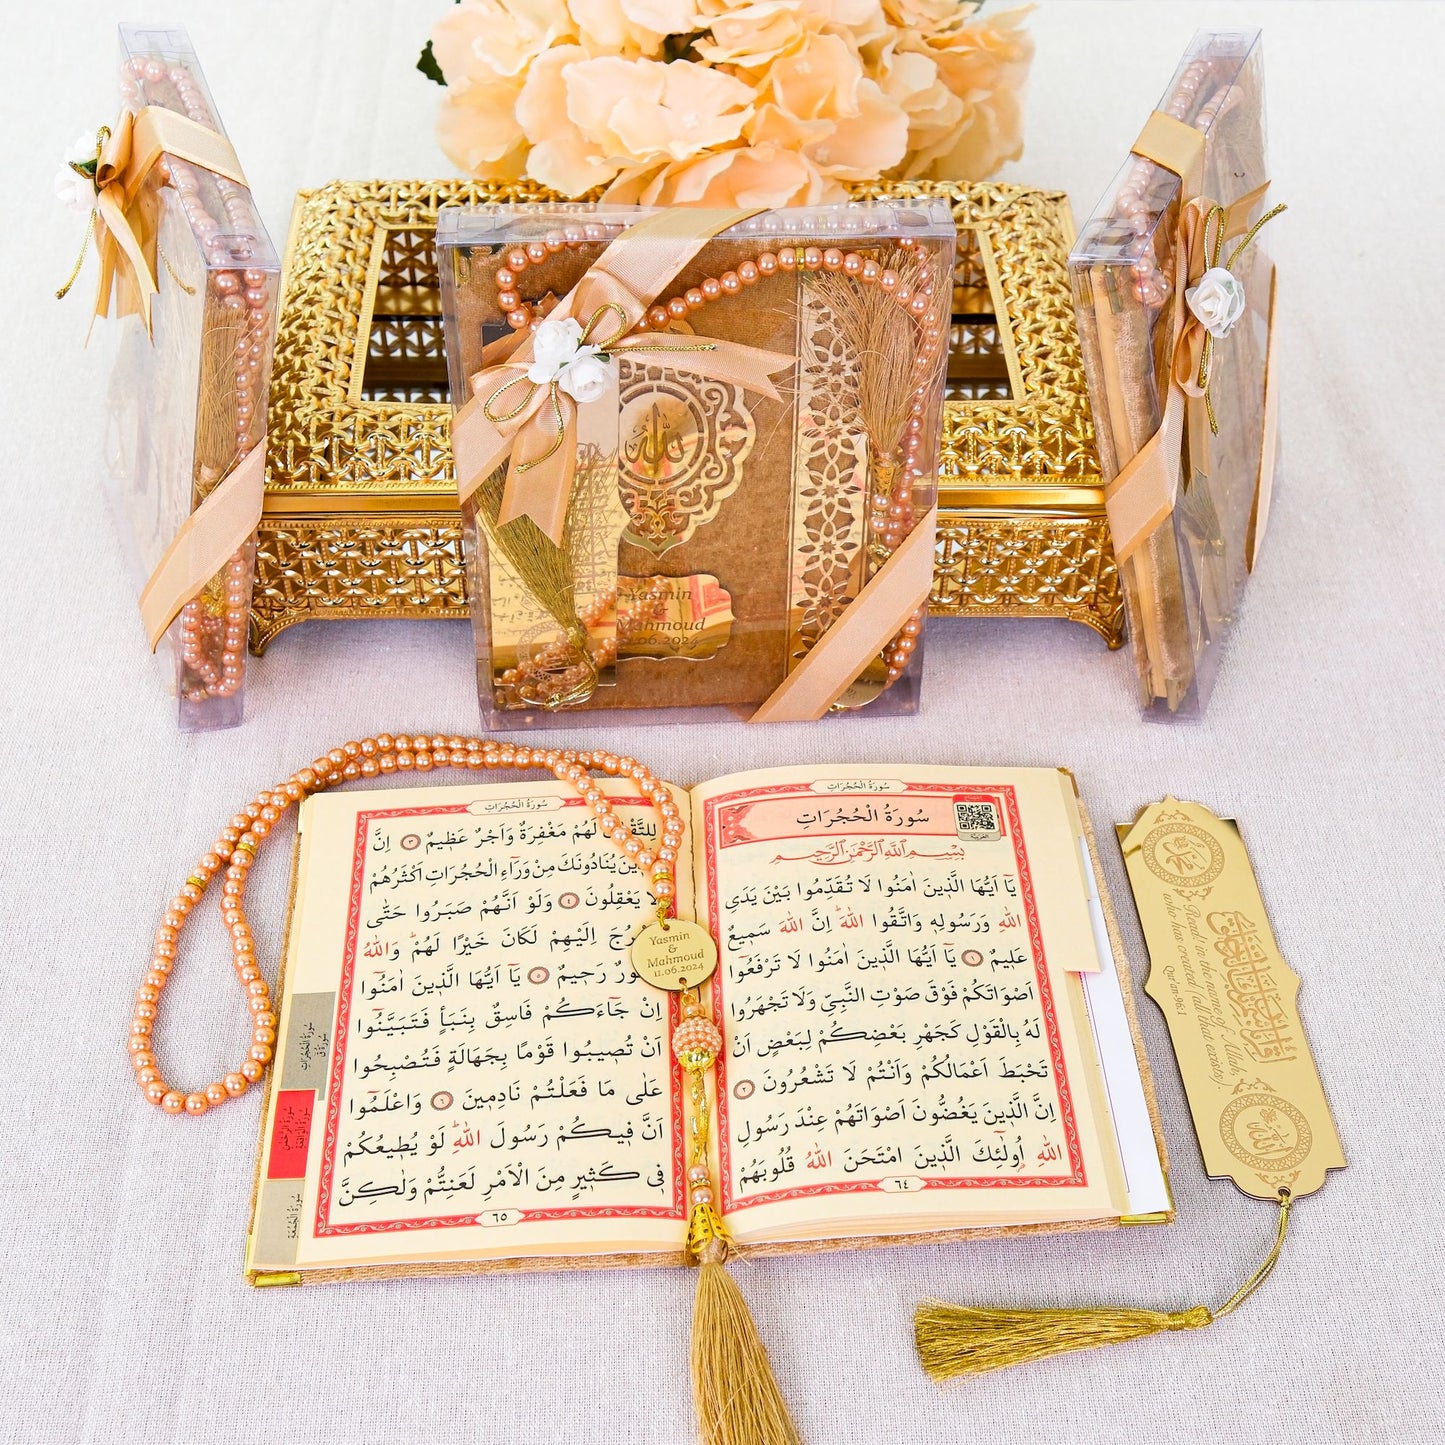 Yasmin
&
Mahmoud
11.06.2024
سُورَةُ الْحُجُرَاتِ
سُورَةُ الْحُجُرَاتِ
بِسْمِ اللهِ الرَّحْمٰنِ الرَّحِيمِ
يَٓا اَيُّهَا الَّذ۪ينَ اٰمَنُوا لَا تُقَدِّمُوا بَيْنَ يَدَيِ
اللهِ وَرَسُولِه۪ وَاتَّقُوا اللهَ اِنَّ اللهَ سَم۪يعٌ
عَل۪يمٌ ١ يَٓا اَيُّهَا الَّذ۪ينَ اٰمَنُوا لَا تَرْفَعُٓوا
اَصْوَاتَكُمْ فَوْقَ صَوْتِ النَّبِيِّ وَلَا تَجْهَرُوا
لَهُ بِالْقَوْلِ كَجَهْرِ بَعْضِكُمْ لِبَعْضٍ اَنْ
تَحْبَطَ اَعْمَالُكُمْ وَاَنْتُمْ لَا تَشْعُرُونَ ٢
اِنَّ الَّذ۪ينَ يَغُضُّونَ اَصْوَاتَهُمْ عِنْدَ رَسُولِ
اللهِ اُو۬لٰٓئِكَ الَّذ۪ينَ امْتَحَنَ اللهُ قُلُوبَهُمْ
٦٤
سُورَةُ الْحُجُرَاتِ
لِلتَّقْوٰى لَهُمْ مَغْفِرَةٌ وَاَجْرٌ عَظ۪يمٌ ٣ اِنَّ
يُنَادُونَكَ مِنْ وَرَٓاءِ الْحُجُرَاتِ اَكْثَرُهُمْ
لَا يَعْقِلُونَ ٤ وَلَوْ اَنَّهُمْ صَبَرُوا حَتّٰى
اِلَيْهِمْ لَكَانَ خَيْرًا لَهُمْ وَاللهُ
رَح۪يمٌ ٥ يَٓا اَيُّهَا الَّذ۪ينَ اٰمَنُٓوا
اِنْ جَٓاءَكُمْ فَاسِقٌ بِنَبَأٍ فَتَبَيَّنُٓوا
اَنْ تُص۪يبُوا قَوْمًا بِجَهَالَةٍ فَتُصْبِحُوا
عَلٰى مَا فَعَلْتُمْ نَادِم۪ينَ ٦ وَاعْلَمُٓوا
اَنَّ ف۪يكُمْ رَسُولَ اللهِ لَوْ يُط۪يعُكُمْ
ف۪ي كَث۪يرٍ مِنَ الْاَمْرِ لَعَنِتُّمْ وَلٰكِنَّ
٦٥
Yasmin
&
Mahmoud
11.06.2024
محمد
Read in the name of Allah,
who has created (all that exists).
Qur'an 96:1
الله